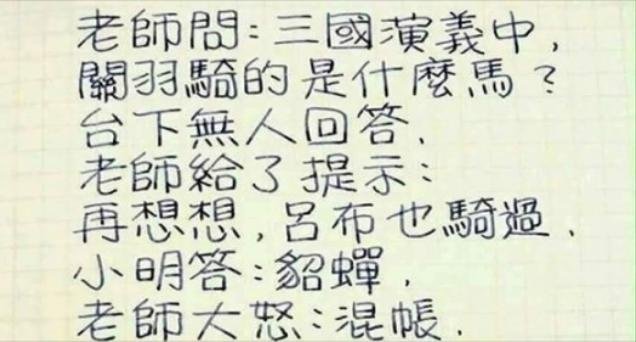 老師問:三國演義中,
關羽騎的是什麼馬?
台下無人回答.
老師給了提示:
再想想,呂布也騎過.
小明答:貂蟬.
老師大怒:混帳.